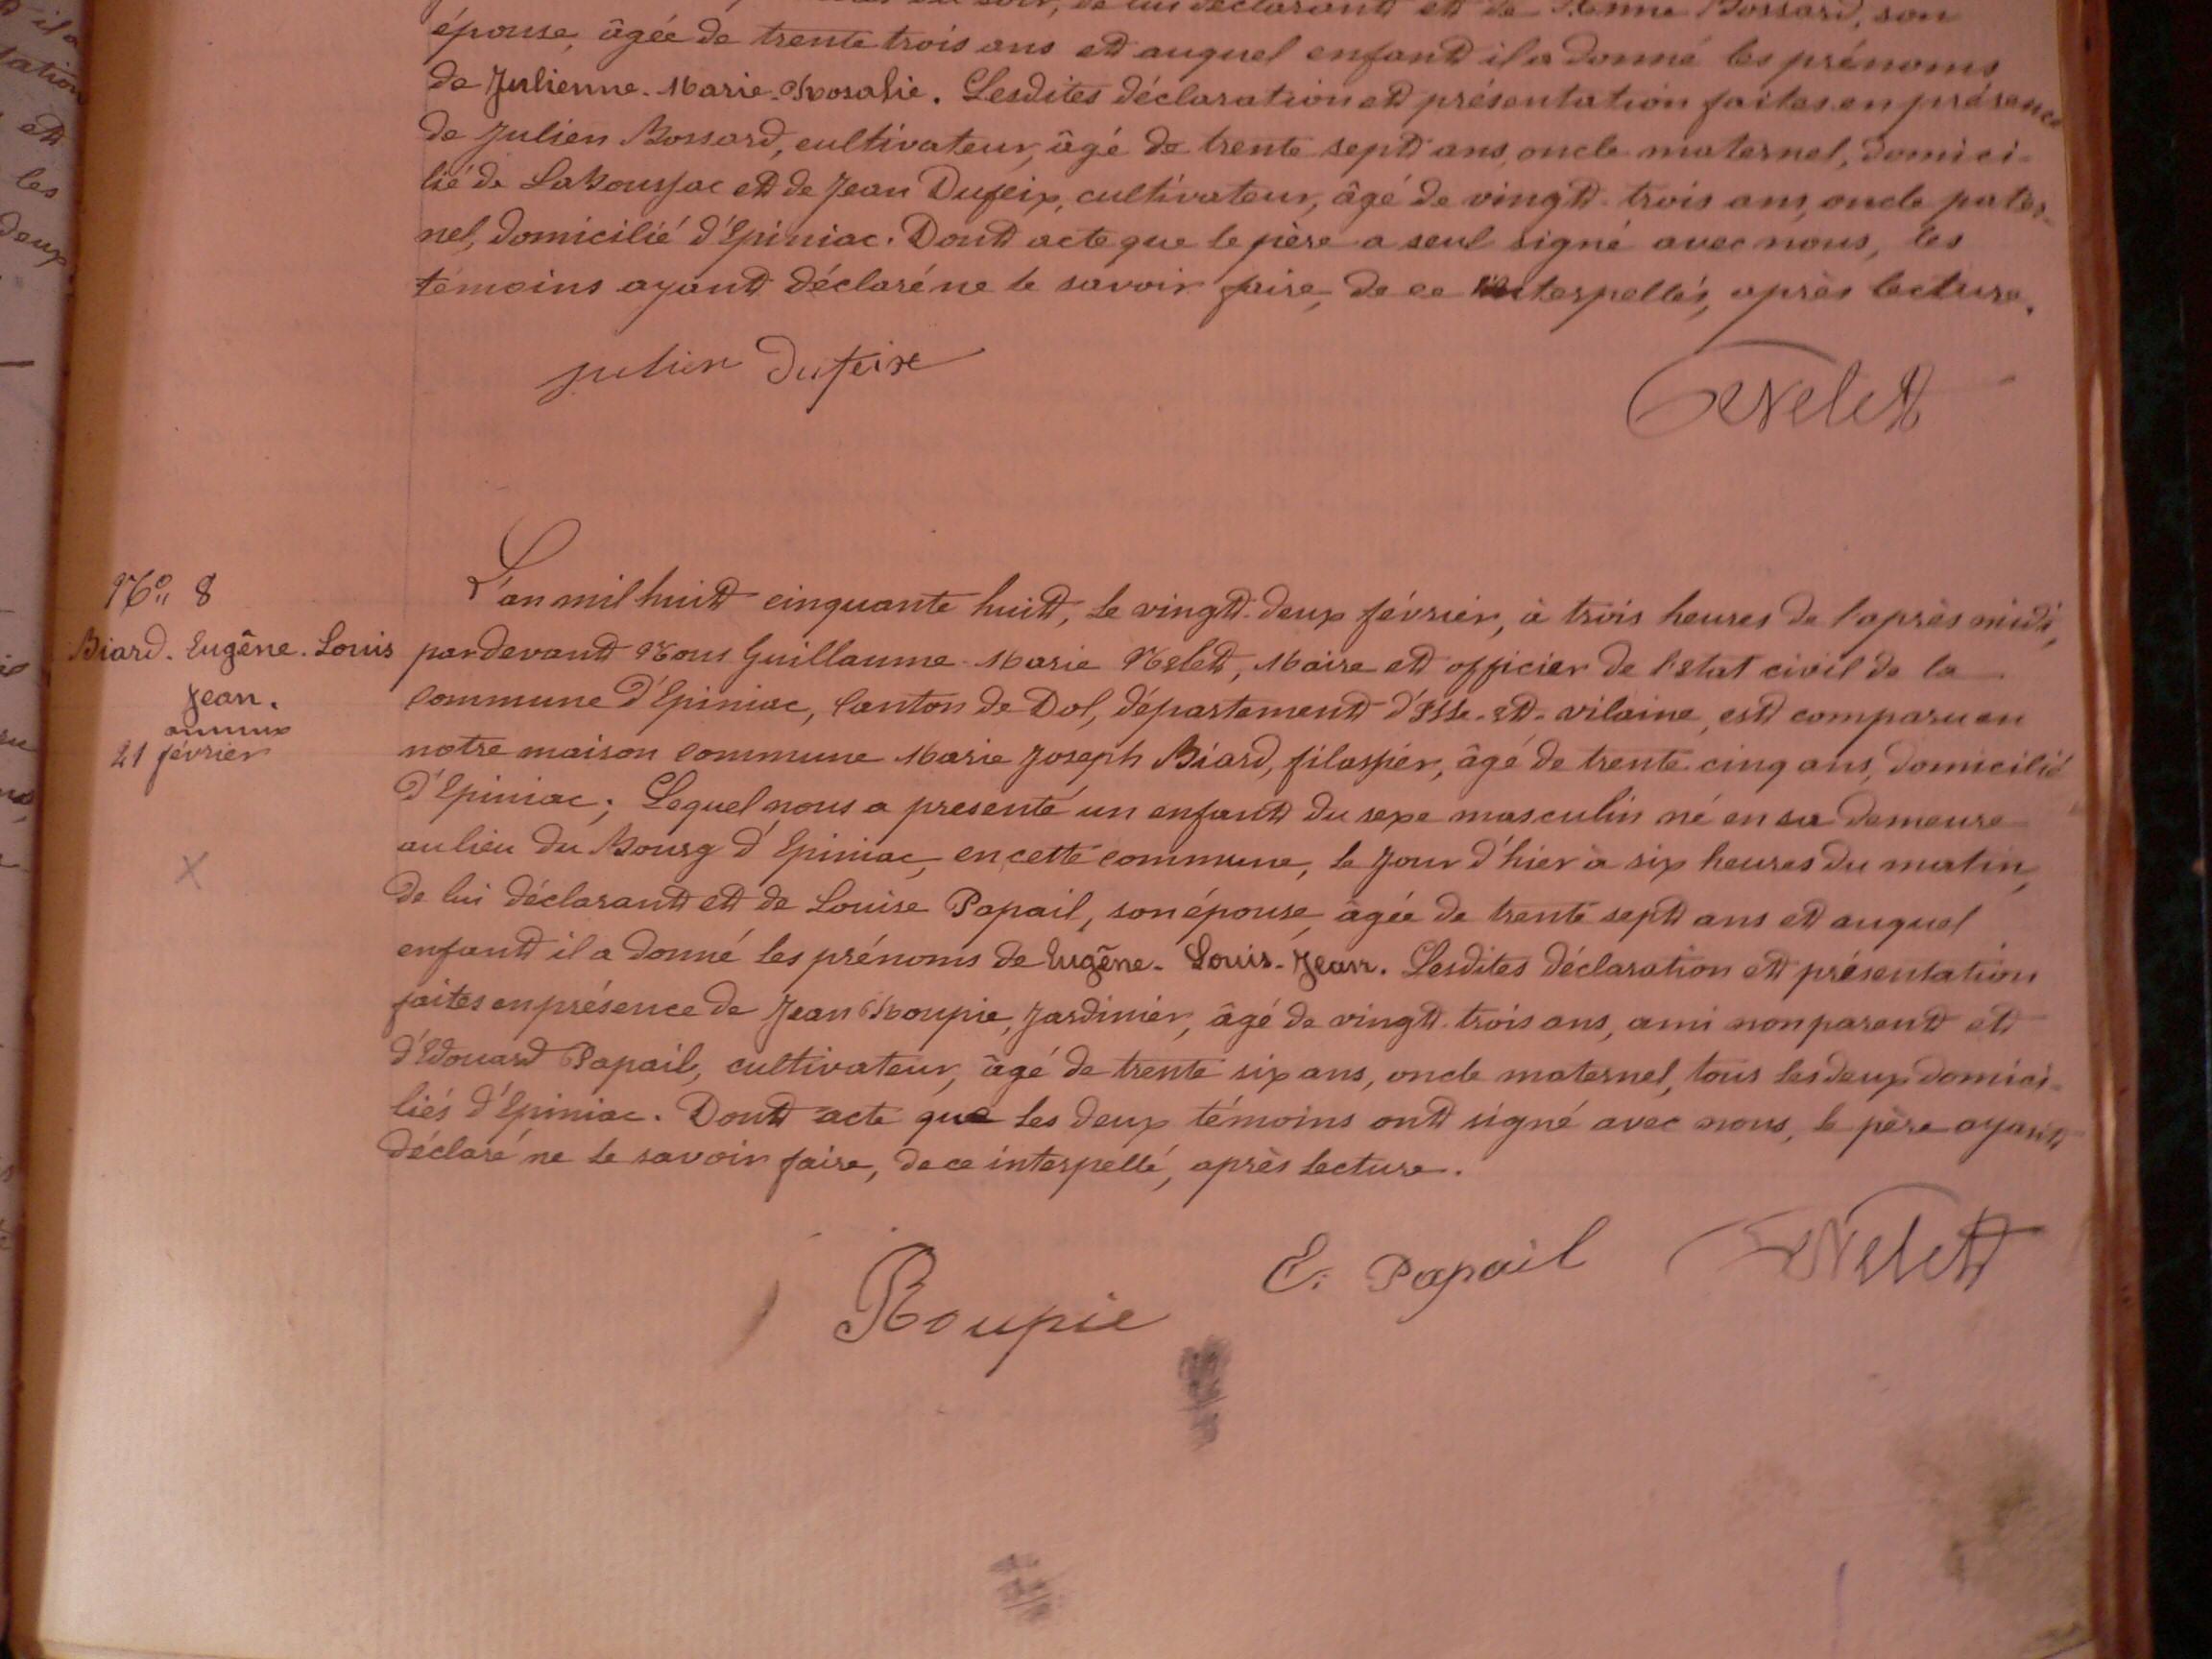 du soir, de lui déclarant et de Bossard, son
épouse, âgée de trente trois ans et auquel enfant il a donné les prénoms
de Julienne-Marie-Rosalie. Lesdites déclaration et présentation faites en présence
de Julien Bossard, cultivateur, âgé de trente sept ans, oncle maternel, domici-
lié de Laboussac et de Jean Dufeix, cultivateur, âgé de vingt-trois ans, oncle pater-
nel, domicilié d'Epiniac. Dont acte que le père a seul signé avec nous, les
témoins ayant déclaré ne le savoir faire, de ce interpellés, après lecture.
julien dufeix
Nelet
No 8
Biard. Eugêne. Louis
Jean.
21 février
L'an mil huit cinquante huit, le vingt-deux février, à trois heures de l'après midi,
pardevant Nous Guillaume-Marie Nelet, Maire et officier de l'état civil de la
Commune d'Epiniac, Canton de Dol, département d'Ille-et-vilaine, est comparu en
notre maison Commune Marie Joseph Biard, filassier, âgé de trente cinq ans, domicilié
d'Epiniac; Lequel nous a presenté un enfant du sexe masculin né en sa demeure
au lieu du Bourg d'Epiniac, en cette commune, le jour d'hier à six heures du matin,
de lui déclarant et de Louise Papail, son épouse, âgée de trente sept ans et auquel
enfant il a donné les prénoms de Eugêne-Louis-Jean. Lesdites déclaration et présentation
faites en présence de Jean Roupie, Jardinier, âgé de vingt-trois ans, ami non parent et
d'Edouard Papail, cultivateur, âgé de trente six ans, oncle maternel, tous les deux domici-
liés d'Epiniac. Dont acte que les deux témoins ont signé avec nous, le père ayant
déclaré ne le savoir faire, de ce interpellé, après lecture.
Roupie
E. Papail
Nelet